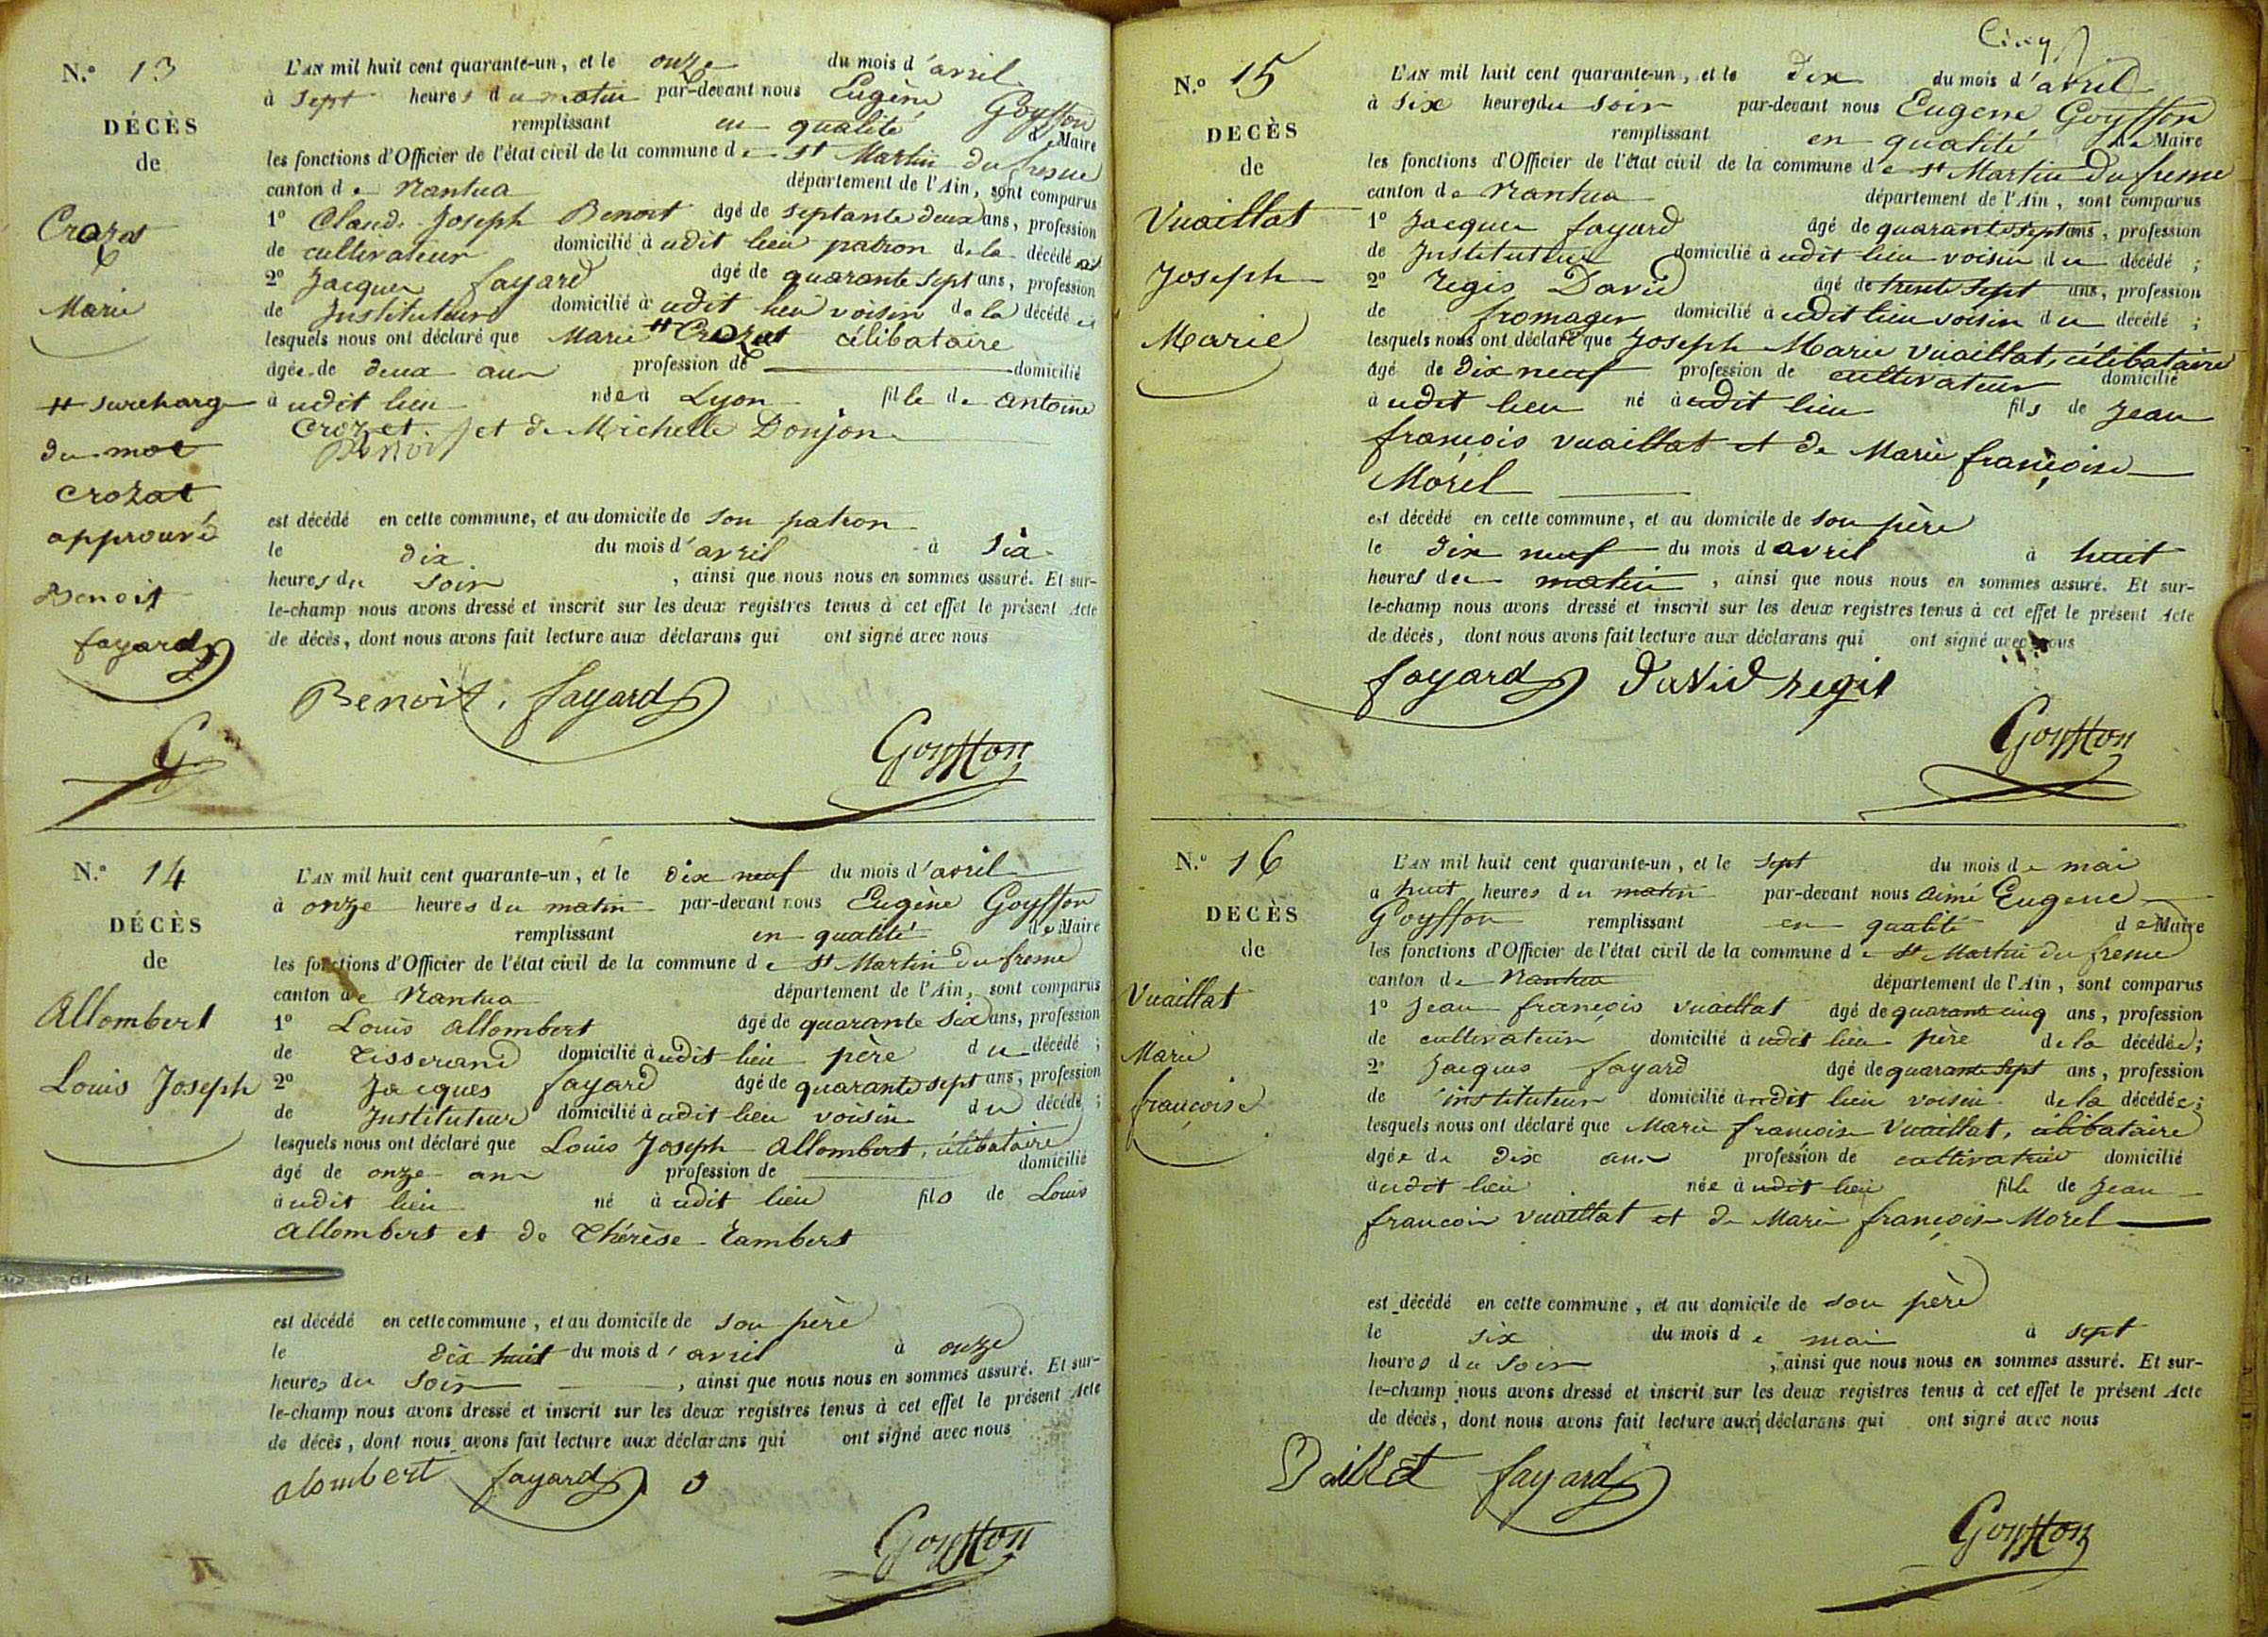 N.º 13
DÉCÈS
de
Crozat
Marie
# surcharge
du mot
crozat
approuvé
Benoit
fayard
G
L'AN mil huit cent quarante-un, et le onze du mois d'avril
à sept heures du matin par-devant nous Eugène Goyffon
remplissant en qualité de Maire
les fonctions d'Officier de l'état civil de la commune de St Martin du fresne
canton de Nantua département de l'Ain, sont comparus
1º Claude Joseph Benoit âgé de septante deux ans, profession
de cultivateur domicilié à udit lieu patron de la décédée
2º Jacques fayard âgé de quarante sept ans, profession
de Instituteur domicilié à udit lieu voisin de la décédée
lesquels nous ont déclaré que Marie # Crozat célibataire
âgée de deux ans profession de domicilié
à udit lieu née à Lyon fille de antoine
Crozet et de Michelle Donjon
Benoit
est décédé en cette commune, et au domicile de son patron
le dix du mois d'avril à six
heures du soir, ainsi que nous nous en sommes assuré. Et sur-
le-champ nous avons dressé et inscrit sur les deux registres tenus à cet effet le présent Acte
de décès, dont nous avons fait lecture aux déclarans qui ont signé avec nous
Benoit. fayard
Goyffon
N.º 14
DÉCÈS
de
Allombert
Louis Joseph
L'AN mil huit cent quarante-un, et le dix neuf du mois d'avril
à onze heures du matin par-devant nous Eugène Goyffon
remplissant en qualité de Maire
les fonctions d'Officier de l'état civil de la commune de St Martin du fresne
canton de Nantua département de l'Ain, sont comparus
1º Louis allombert âgé de quarante six ans, profession
de Tisserand domicilié à udit lieu père du décédé ;
2º Jacques fayard âgé de quarante sept ans, profession
de Instituteur domicilié à udit lieu voisin du décédé ;
lesquels nous ont déclaré que Louis Joseph allombert, célibataire
âgé de onze ans profession de domicilié
à udit lieu né à udit lieu fils de Louis
allombert et de Thérèse Lambert
est décédé en cette commune, et au domicile de son père
le dix huit du mois d'avril à onze
heures du soir, ainsi que nous nous en sommes assuré. Et sur-
le-champ nous avons dressé et inscrit sur les deux registres tenus à cet effet le présent Acte
de décès, dont nous avons fait lecture aux déclarans qui ont signé avec nous
alombert fayard
Goyffon
Cinq
N.º 15
DECÈS
de
Vuaillat
Joseph
Marie
L'AN mil huit cent quarante-un, et le dix du mois d'avril
à six heures du soir par-devant nous Eugene Goyffon
remplissant en qualité de Maire
les fonctions d'Officier de l'état civil de la commune de St Martin Du fresne
canton de Nantua département de l'Ain, sont comparus
1º Jacques fayard âgé de quarante sept ans, profession
de Instituteur domicilié à udit lieu voisin du décédé ;
2º Regis David âgé de trente sept ans, profession
de fromager domicilié à udit lieu voisin du décédé ;
lesquels nous ont déclaré que Joseph Marie Vuaillat, célibataire
âgé de dix neuf profession de cultivateur domicilié
à udit lieu né à udit lieu fils de Jean
françois vuaillat et de Marie françoise
Morel
est décédé en cette commune, et au domicile de son père
le dix neuf du mois d'avril à huit
heures du matin, ainsi que nous nous en sommes assuré. Et sur-
le-champ nous avons dressé et inscrit sur les deux registres tenus à cet effet le présent Acte
de décès, dont nous avons fait lecture aux déclarans qui ont signé avec nous
fayard David regis
Goyffon
N.º 16
DECÈS
de
Vuaillat
Marie
françoise
L'AN mil huit cent quarante-un, et le sept du mois de mai
à huit heures du matin par-devant nous aimé Eugene
Goyffon remplissant en qualité de Maire
les fonctions d'Officier de l'état civil de la commune de St Martin du fresne
canton de Nantua département de l'Ain, sont comparus
1º Jean françois vuaillat âgé de quarante cinq ans, profession
de cultivateur domicilié à udit lieu père de la décédée ;
2º Jacques fayard âgé de quarante sept ans, profession
de instituteur domicilié à udit lieu voisin de la décédée ;
lesquels nous ont déclaré que Marie françoise Vuaillat, célibataire
âgée de dix ans profession de domicilié
à udit lieu née à udit lieu fille de Jean
francois vuaillat et de Marie françoise Morel
est décédé en cette commune, et au domicile de son père
le six du mois de mai à sept
heures du soir, ainsi que nous nous en sommes assuré. Et sur-
le-champ nous avons dressé et inscrit sur les deux registres tenus à cet effet le présent Acte
de décès, dont nous avons fait lecture aux déclarans qui ont signé avec nous
fayard
Goyffon